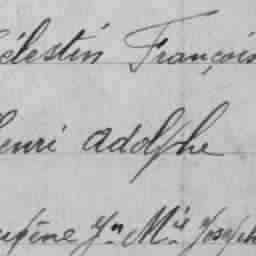 Célestin François
Henri Adolphe
Eugène Jn Mie Joseph